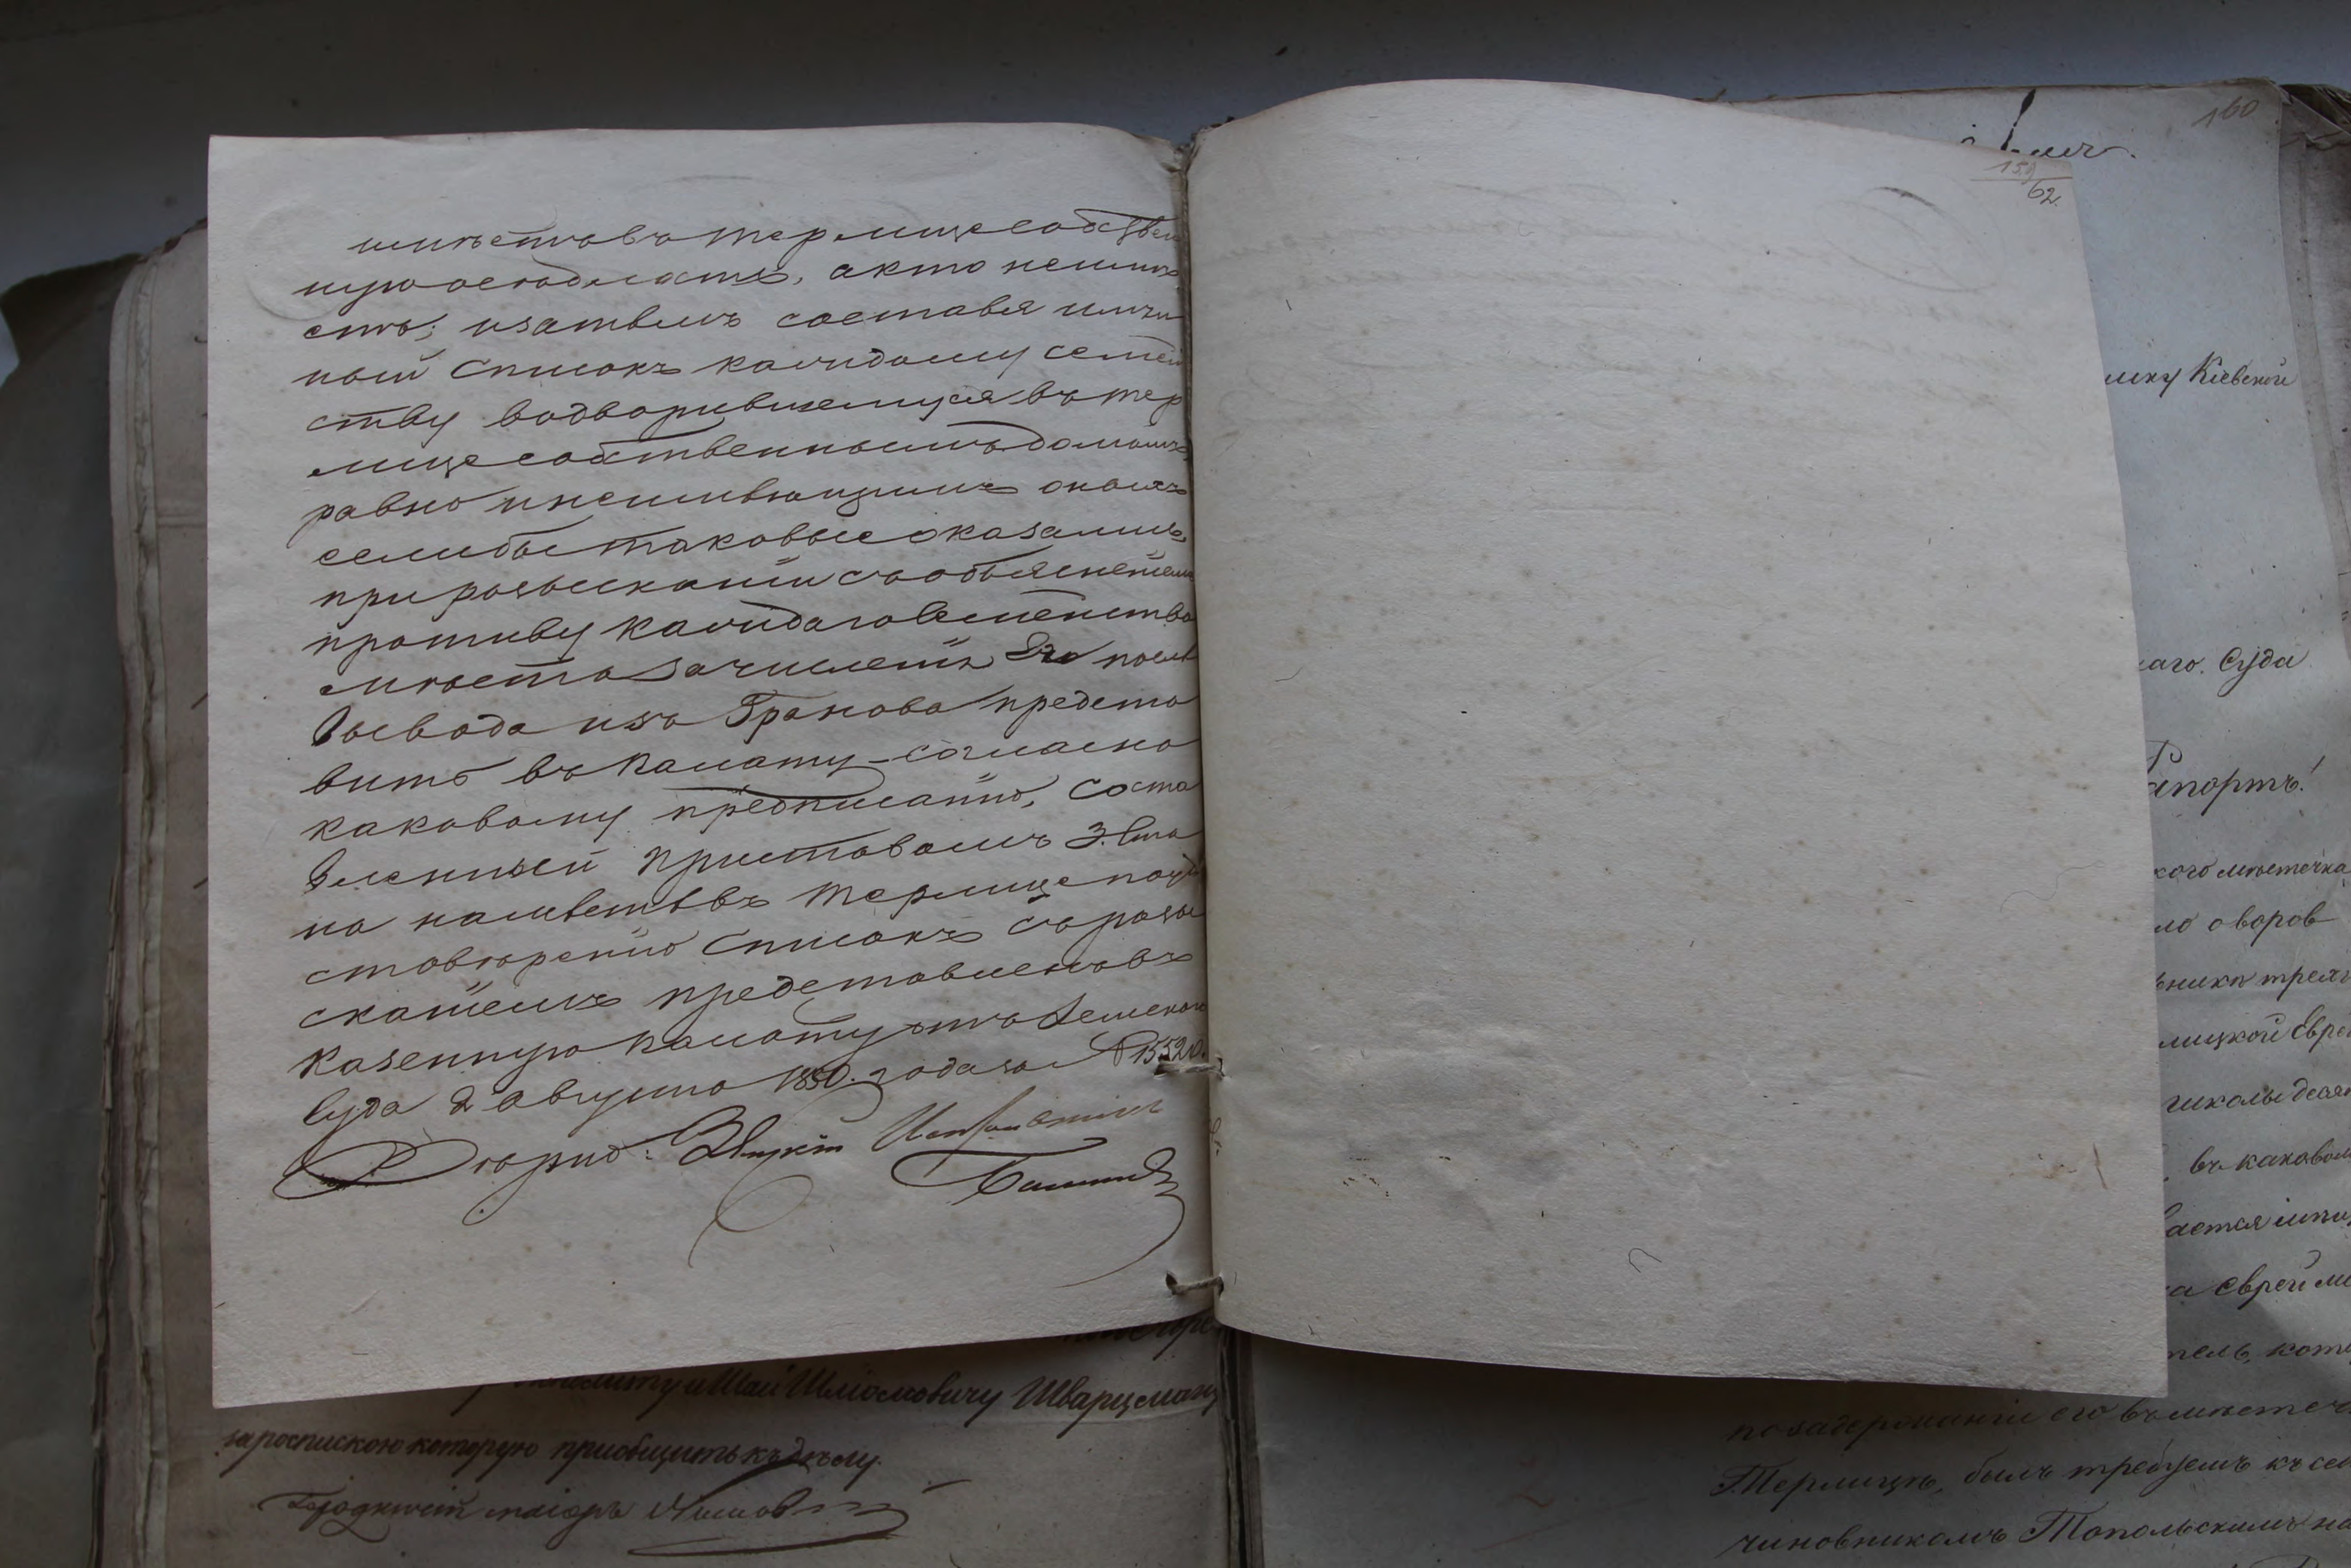 имѣетъ въ Терлице собствен
ную оседлость, а кто неимѣ
етъ; и затѣмъ составя имян
ной списокъ каждому семей
ству водворившемуся въ Тер
лице собственнымъ домомъ
равно и неимѣющимъ оныхъ
если бы таковые оказались
при розысканіи съ объясненіемъ
противу каждаго семейства
мѣста зачисленія Его послѣ
вывода изъ Гранова предста
вить въ Палату согласно
каковому предписанію, соста
вленный Приставомъ 3. Ста
на на мѣстѣ въ Терлице по уд
стовѣренію списокъ съ розы
сканіемъ представленъ въ
Казенную Палату отъ Земскаго
Суда 2 августа 1850. года за № 15520.
160
159
62.
лику Кіевской
аго. Суда
Рапортъ!
кого мѣстечка
ло о воров
лицкой Евре
школы десят
въ каковом
ается
а Еврей
тель, кото
по задержаніи его въ местеч
Терлицѣ, былъ требуемъ къ
чиновникомъ Топольскимъ на
и Шаи Шліомовичу Шварцману
за роспискою которую пріобщить къ дѣлу.
Городничій маіоръ